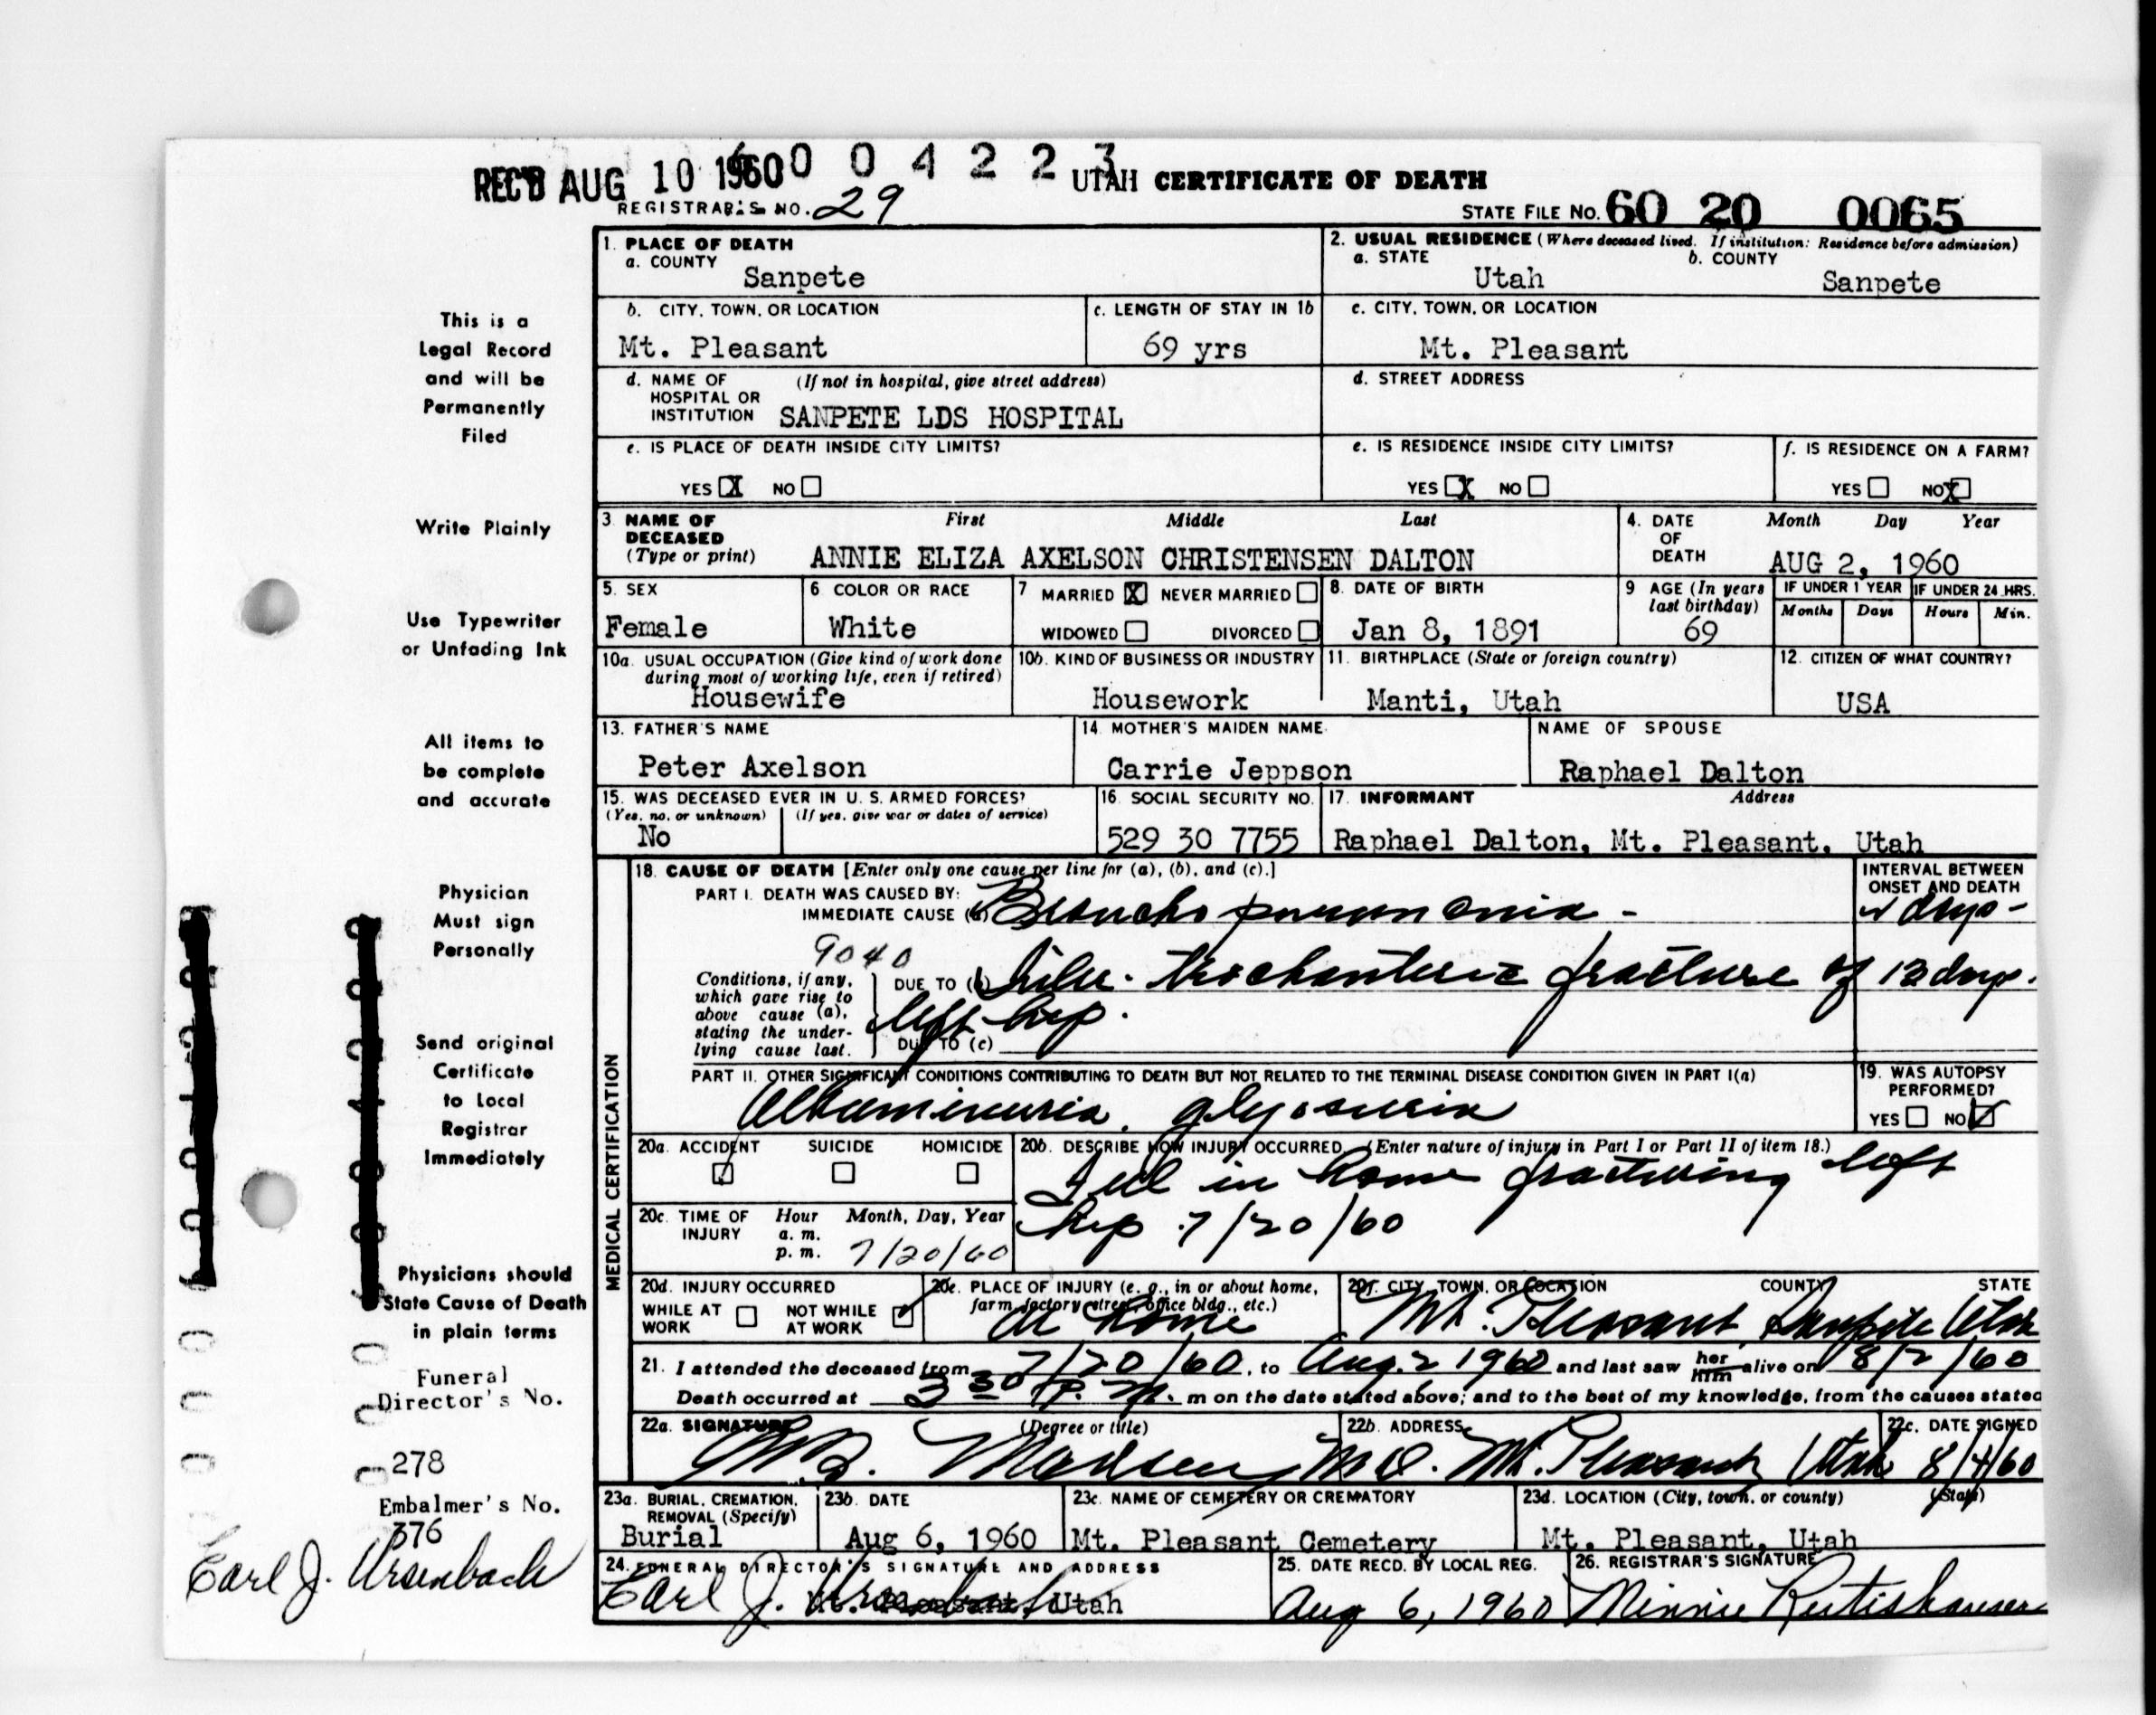 REC'D AUG 10 1960
6 0 0 4 2 2 3
UTAH CERTIFICATE OF DEATH
REGISTRAR'S NO. 29
STATE FILE NO. 60 20 0065
1. PLACE OF DEATH
a. COUNTY
Sanpete
2. USUAL RESIDENCE (Where deceased lived. If institution: Residence before admission)
a. STATE b. COUNTY
Utah Sanpete
b. CITY, TOWN, OR LOCATION
Mt. Pleasant
c. LENGTH OF STAY IN 1b
69 yrs
c. CITY, TOWN, OR LOCATION
Mt. Pleasant
d. NAME OF HOSPITAL OR INSTITUTION (If not in hospital, give street address)
SANPETE LDS HOSPITAL
d. STREET ADDRESS
e. IS PLACE OF DEATH INSIDE CITY LIMITS?
YES X NO
e. IS RESIDENCE INSIDE CITY LIMITS?
YES X NO
f. IS RESIDENCE ON A FARM?
YES NO X
3. NAME OF DECEASED (Type or print) First Middle Last
ANNIE ELIZA AXELSON CHRISTENSEN DALTON
4. DATE OF DEATH Month Day Year
AUG 2, 1960
5. SEX
Female
6 COLOR OR RACE
White
7 MARRIED X NEVER MARRIED
WIDOWED DIVORCED
8. DATE OF BIRTH
Jan 8, 1891
9 AGE (In years last birthday)
69
IF UNDER 1 YEAR IF UNDER 24 HRS.
Months Days Hours Min.
10a. USUAL OCCUPATION (Give kind of work done during most of working life, even if retired)
Housewife
10b. KIND OF BUSINESS OR INDUSTRY
Housework
11. BIRTHPLACE (State or foreign country)
Manti, Utah
12. CITIZEN OF WHAT COUNTRY?
USA
13. FATHER'S NAME
Peter Axelson
14. MOTHER'S MAIDEN NAME
Carrie Jeppson
NAME OF SPOUSE
Raphael Dalton
15. WAS DECEASED EVER IN U. S. ARMED FORCES?
(Yes, no, or unknown) (If yes, give war or dates of service)
No
16. SOCIAL SECURITY NO.
529 30 7755
17. INFORMANT Address
Raphael Dalton, Mt. Pleasant, Utah
MEDICAL CERTIFICATION
18. CAUSE OF DEATH [Enter only one cause per line for (a), (b), and (c).]
PART I. DEATH WAS CAUSED BY:
IMMEDIATE CAUSE (a) Broncho pneumonia -
INTERVAL BETWEEN ONSET AND DEATH
days -
9040
Conditions, if any, which gave rise to above cause (a), stating the underlying cause last.
DUE TO (b) Inter-trochanteric fracture of 13 days.
left hip.
DUE TO (c)
PART II. OTHER SIGNIFICANT CONDITIONS CONTRIBUTING TO DEATH BUT NOT RELATED TO THE TERMINAL DISEASE CONDITION GIVEN IN PART I(a)
Albuminuria. glycosuria
19. WAS AUTOPSY PERFORMED?
YES NO ✓
20a. ACCIDENT SUICIDE HOMICIDE
20b. DESCRIBE HOW INJURY OCCURRED. (Enter nature of injury in Part I or Part II of item 18.)
Fell in home fracturing left
hip 7/20/60
20c. TIME OF INJURY Hour Month, Day, Year
a. m.
p. m. 7/20/60
20d. INJURY OCCURRED
WHILE AT WORK NOT WHILE AT WORK ✓
20e. PLACE OF INJURY (e. g., in or about home, farm, factory, street, office bldg., etc.)
At Home
20f. CITY, TOWN, OR LOCATION COUNTY STATE
Mt. Pleasant Sanpete Utah
21. I attended the deceased from 7/20/60, to Aug. 2 1960 and last saw her him alive on 8/2/60
Death occurred at 3 30 P. M. m on the date stated above; and to the best of my knowledge, from the causes stated
22a. SIGNATURE (Degree or title)
Madsen M.D.
22b. ADDRESS
Mt. Pleasant Utah
22c. DATE SIGNED
8/4/60
23a. BURIAL, CREMATION, REMOVAL (Specify)
Burial
23b. DATE
Aug 6, 1960
23c. NAME OF CEMETERY OR CREMATORY
Mt. Pleasant Cemetery
23d. LOCATION (City, town, or county) (State)
Mt. Pleasant, Utah
24. FUNERAL DIRECTOR'S SIGNATURE AND ADDRESS
Earl J. Ursenbach
Mt. Pleasant, Utah
25. DATE RECD. BY LOCAL REG.
Aug 6, 1960
26. REGISTRAR'S SIGNATURE
Minnie Rutishauser
This is a
Legal Record
and will be
Permanently
Filed
Write Plainly
Use Typewriter
or Unfading Ink
All items to
be complete
and accurate
Physician
Must sign
Personally
Send original
Certificate
to Local
Registrar
Immediately
Physicians should
State Cause of Death
in plain terms
Funeral
Director's No.
278
Embalmer's No.
376
Earl J. Ursenbach